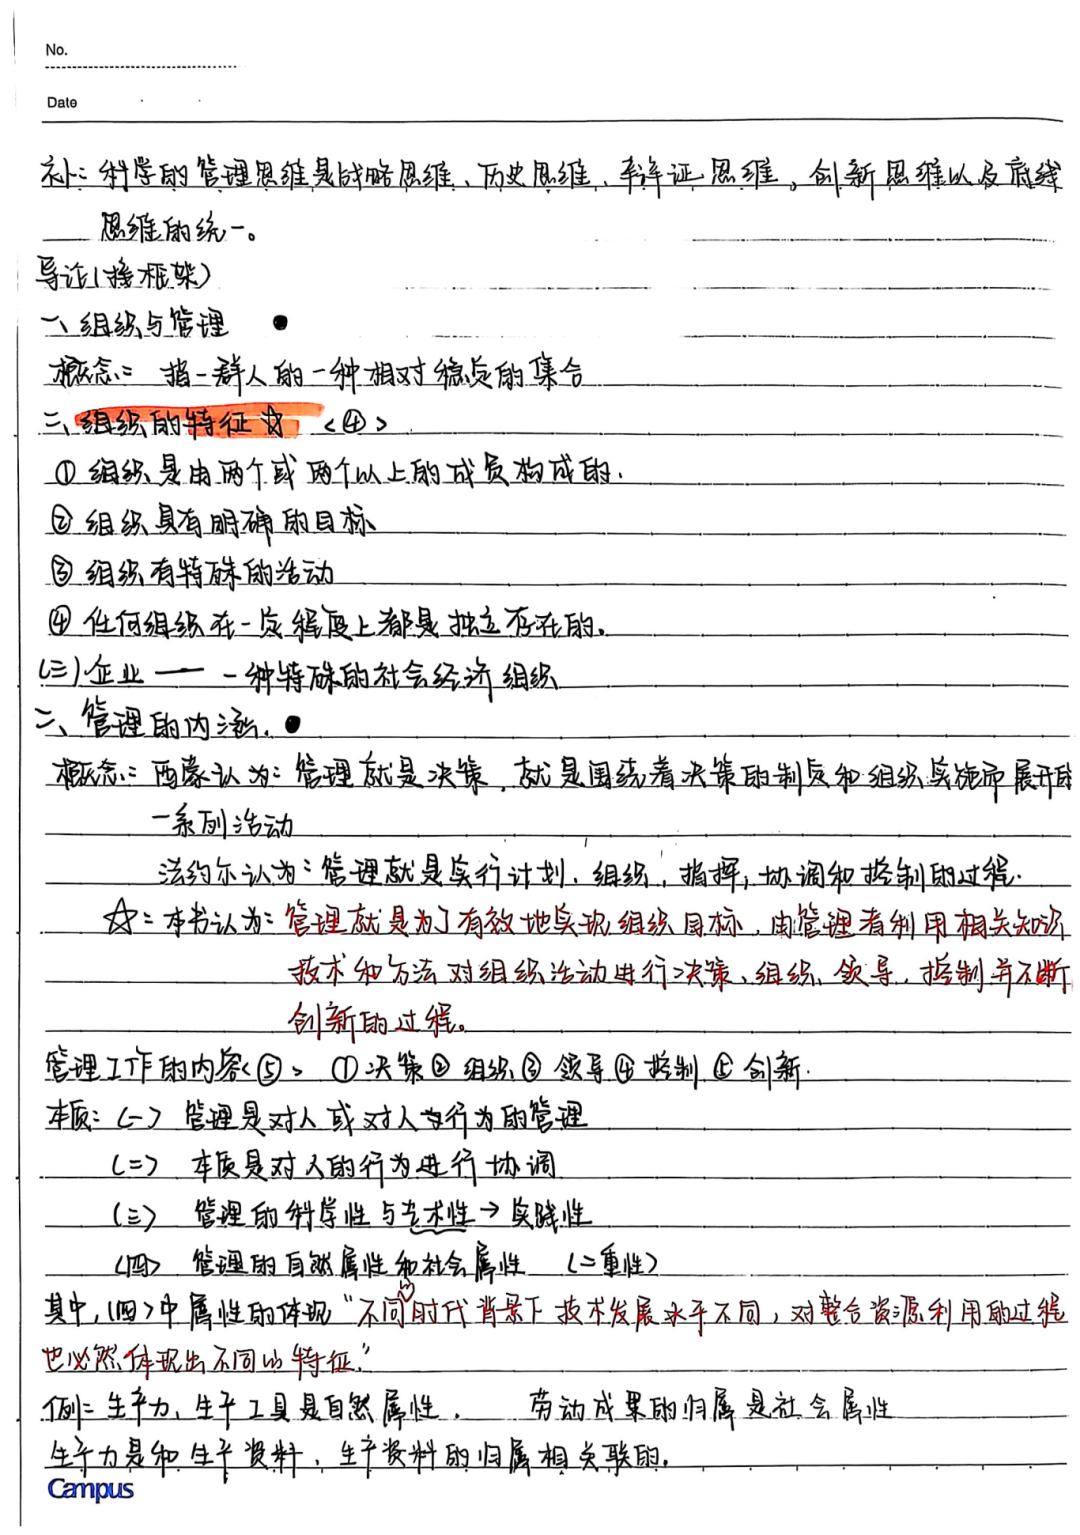 No.
Date
补：科学的管理思维是战略思维、历史思维、辛详证思维、创新思维以及底线
思维的统一。
导论(接框架)
一、组织与管理 ●
概念：指一群人的一种相对稳定的集合
二、组织的特征☆ <④>
① 组织是由两个或两个以上的成员构成的.
② 组织具有明确的目标
③ 组织有特殊的活动
④ 任何组织在一定程度上都是独立存在的。
(三)企业 —— 一种特殊的社会经济组织
二、管理的内涵. ●
概念：西蒙认为：管理就是决策，就是围绕着决策的制定和组织实施而展开的
一系列活动
法约尔认为：管理就是实行计划、组织，指挥，协调和控制的过程.
☆：本书认为：管理就是为了有效地实现组织目标，由管理者利用相关知识
技术和方法对组织活动进行决策、组织、领导，控制并不断
创新的过程。
管理工作的内容<⑤> ①决策②组织③领导④控制⑤创新.
本质：(一) 管理是对人或对人为行为的管理
(二) 本质是对人的行为进行协调
(三) 管理的科学性与艺术性→实践性
(四) 管理的自然属性和社会属性 (二重性)
其中，(四)中属性的体现“不同时代背景下技术发展水平不同，对整合资源利用的过程
也必然体现出不同的特征.”
例：生产力、生产工具是自然属性. 劳动成果的归属是社会属性
生产力是和生产资料、生产资料的归属相关联的.
Campus